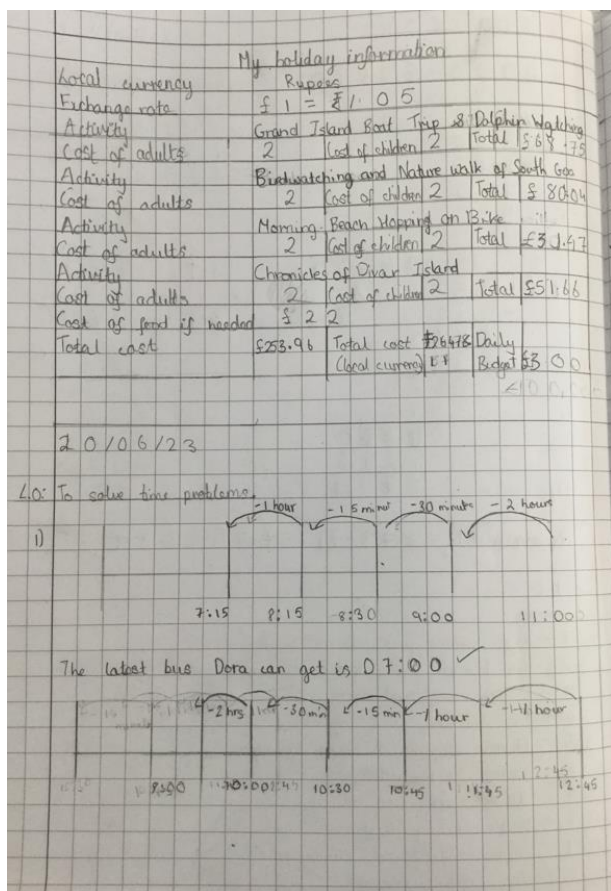 My holiday information
Local currency Rupees
Exchange rate £ 1 = ₹1.05
Activity Grand Island Boat Trip & Dolphin Watching
Cost of adults 2 Cost of children 2 Total £68.75
Activity Birdwatching and Nature walk of South Goa
Cost of adults 2 Cost of children 2 Total £80.04
Activity Morning Beach Hopping on Bike
Cost of adults 2 Cost of children 2 Total £31.47
Activity Chronicles of Divar Island
Cost of adults 2 Cost of children 2 Total £51.66
Cost of food if needed £22
Total cost £253.96 Total cost ₹26478 Daily
(local currency) Budget £300
20/06/23
L.O: To solve time problems.
-1 hour -15 minut -30 minuts -2 hours
1)
7:15 8:15 8:30 9:00 11:00
The latest bus Dora can get is 07:00 ✓
-2 hrs -30 min -15 min -1 hour hour
10:00 10:30 10:45 11:45 12:45
12:45